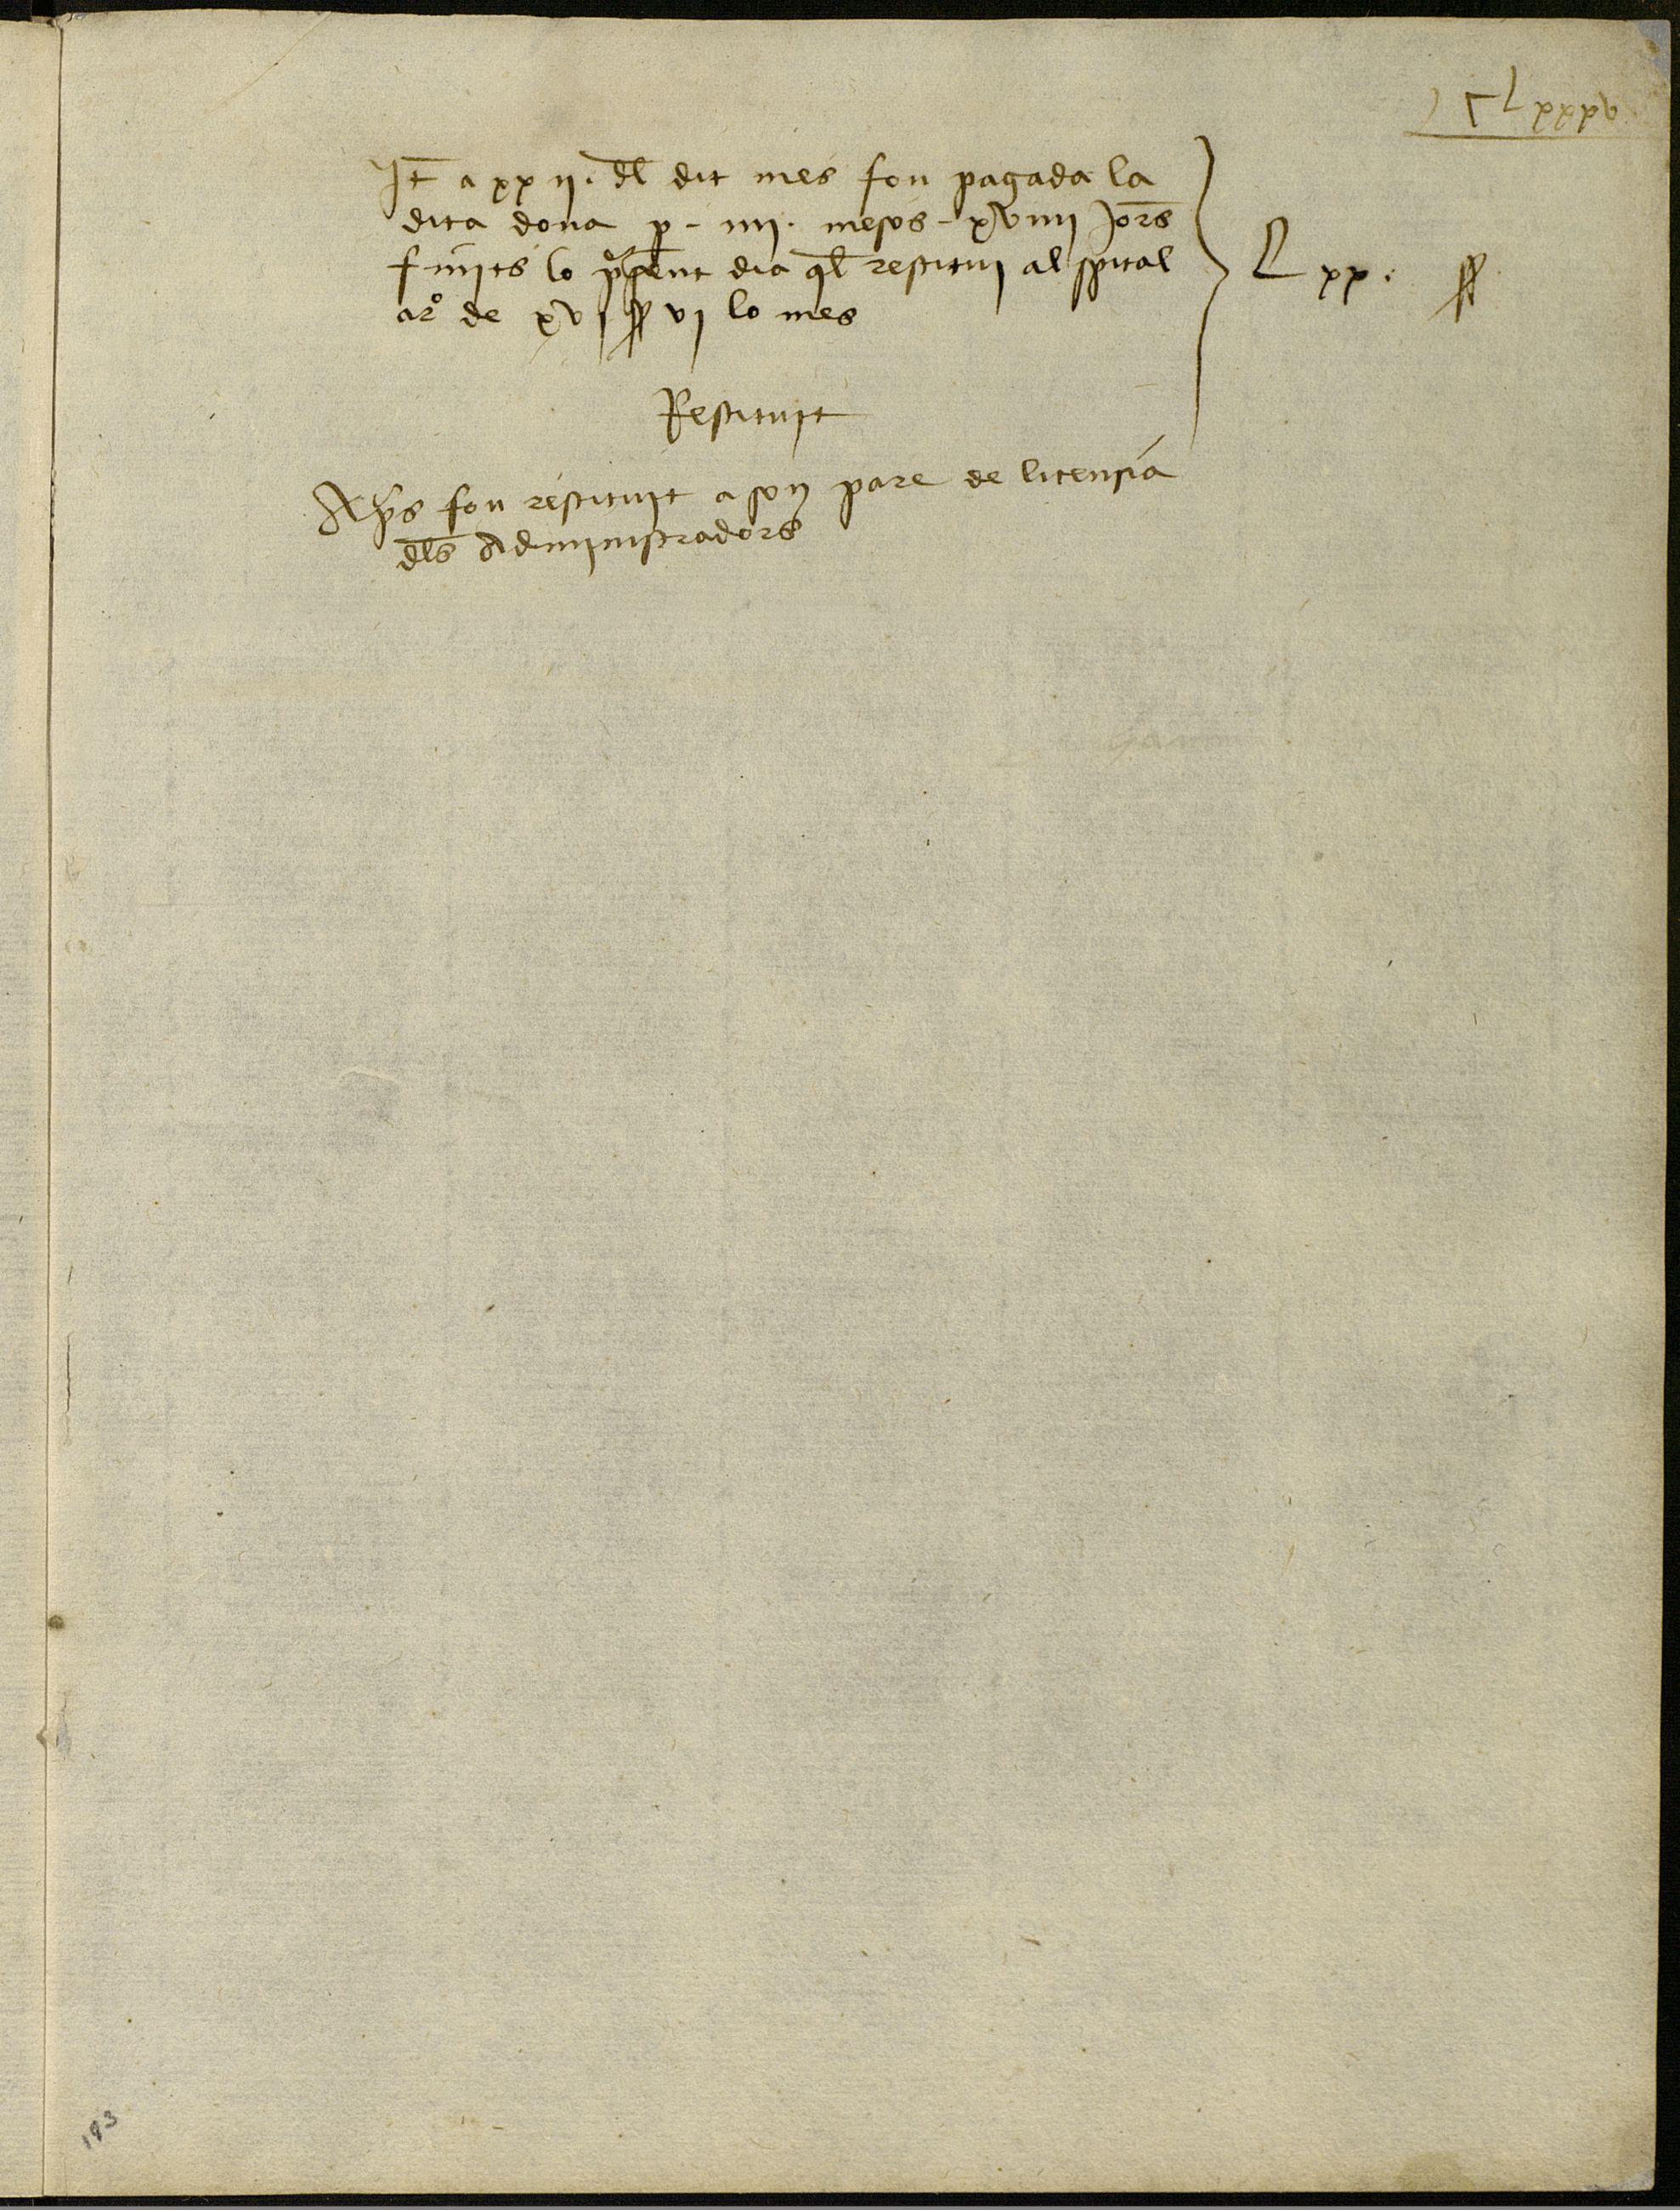 It a xx ij. dl dit mes fou pagada la
dita dona p - iiij. mesos - xviiij Jors
finits lo present dia ql restitui al spital
a ro de xvj ss vj lo mes
L xx. ss
Restituit
fou restituit a son pare de licensia
dls Administradors
193